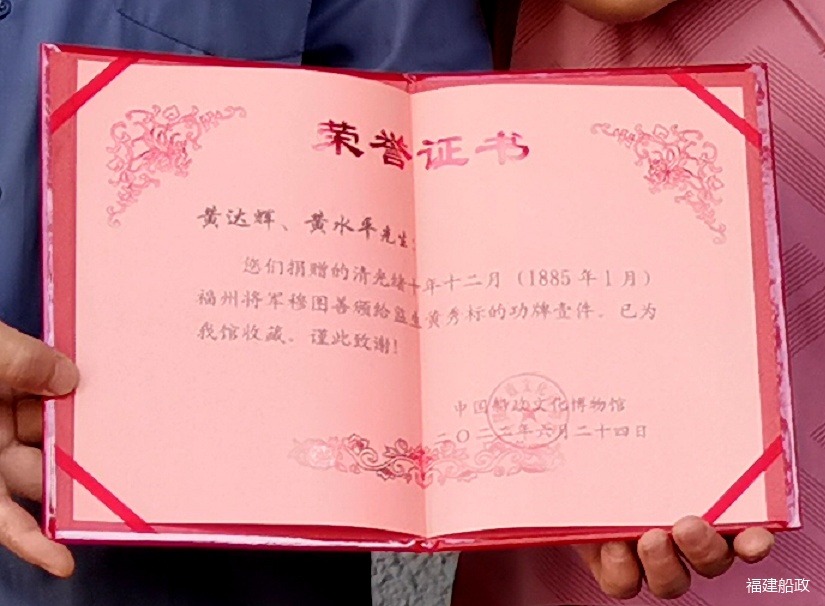 荣誉证书
黄达辉、黄水平先生:
您们捐赠的清光绪十年十二月(1885年1月)
福州将军穆图善颁给监生黄秀标的功牌壹件,已为
我馆收藏。谨此致谢!
中国船政文化博物馆
二〇二二年六月二十四日
福建船政